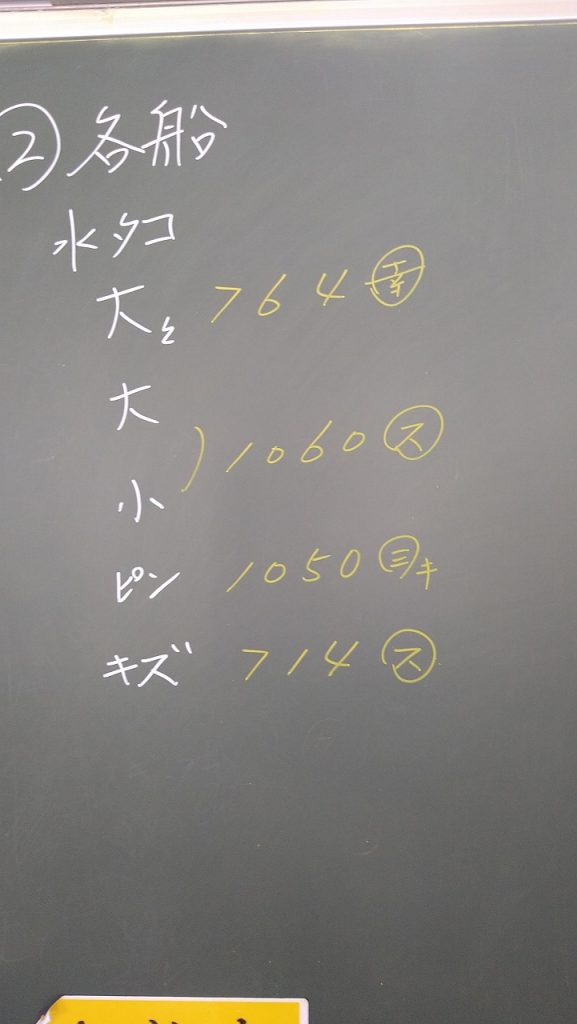 ② 各船
水タコ
大々 764 ㊌幸
大
小 ) 1060 ㋜
ピン 1050 ㋯キ
キズ 714 ㋜